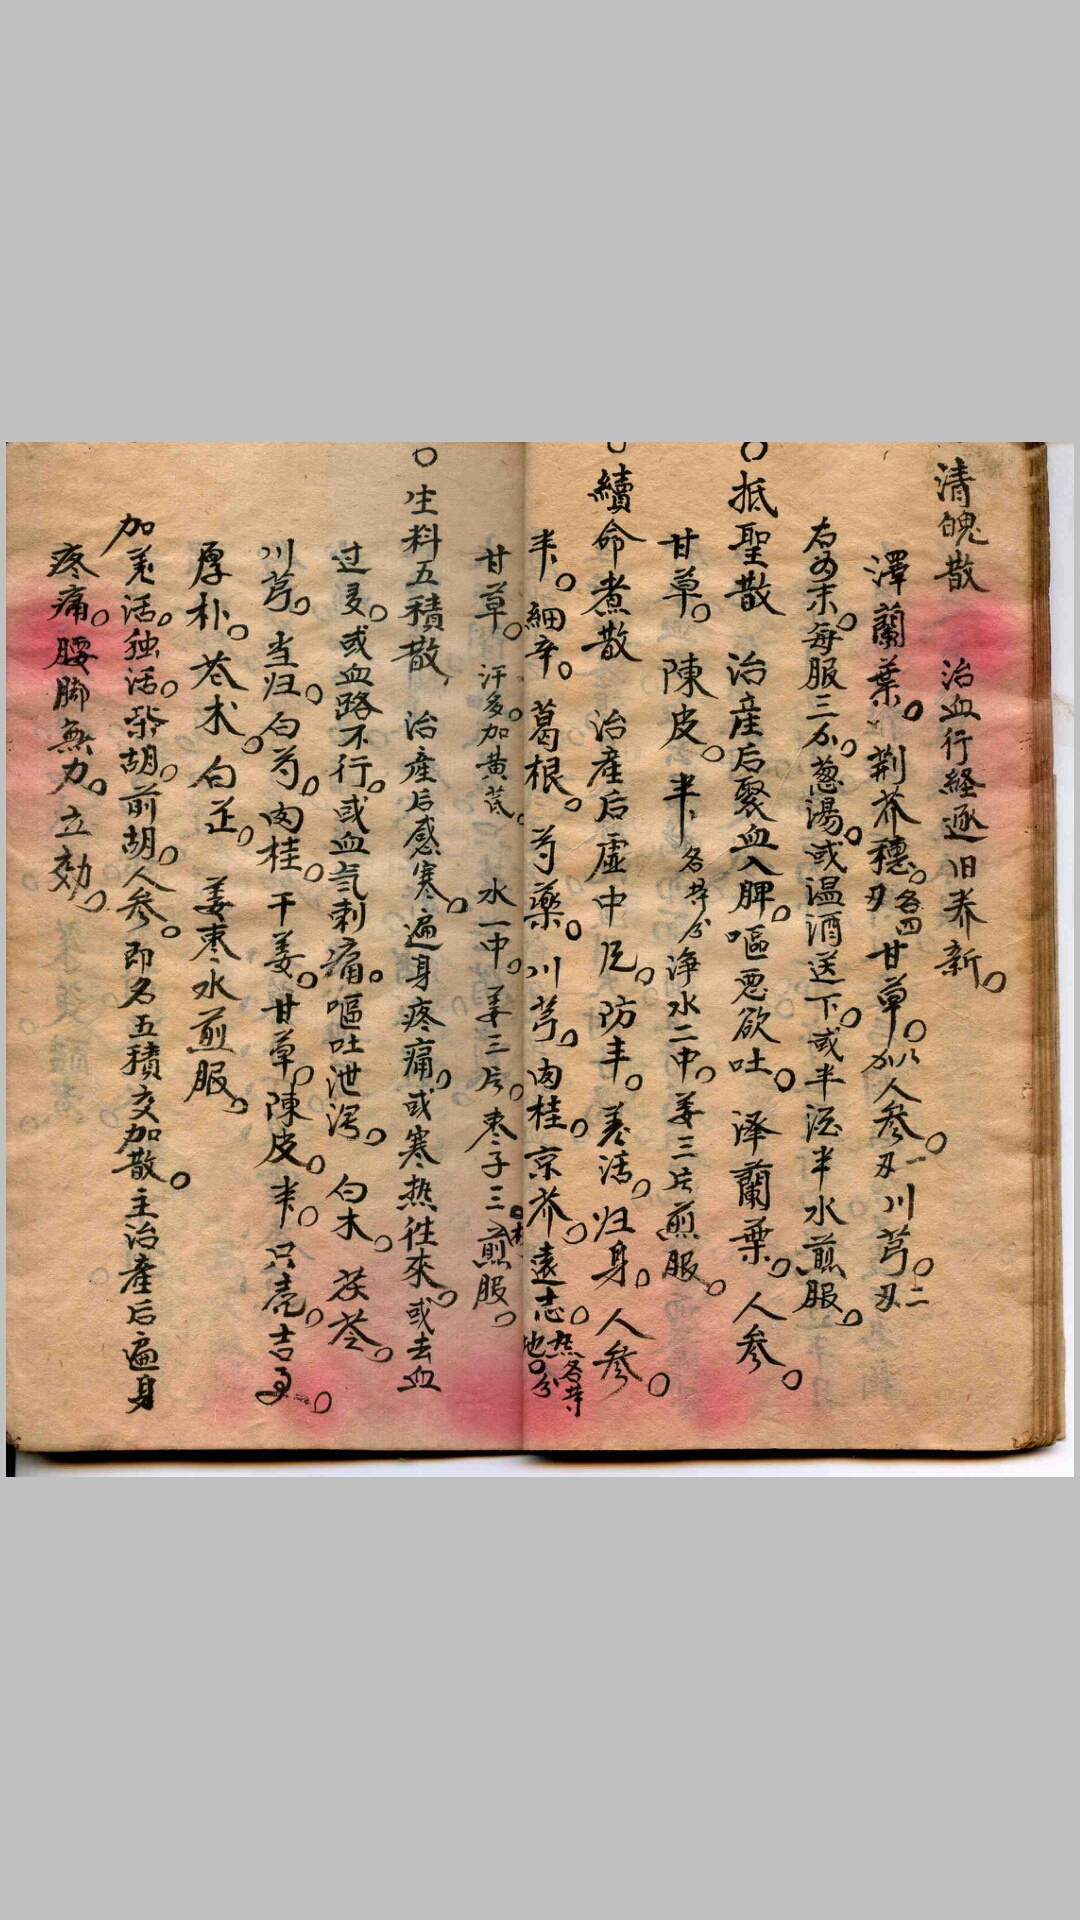 清魄散 治血行経逐旧养新。
澤蘭葉。荆芥穗。各四刄甘草。加人參。刄一川芎。刄二
右為末。每服三分。葱湯。或温酒送下。或半酒半水煎服。
〇抵聖散 治産后聚血入脾。嘔惡欲吐。泽蘭葉。人參。
甘草。陳皮。半各等分淨水二中。姜三片煎服。
〇續命煮散 治產后虚中風。防丰。羌活。归身。人參。
半。細辛。葛根。芍藥。川芎。肉桂。京芥。遠志。熟地。各等分
甘草。汗多。加黄芪。水一中。姜三片。枣子三煎服。
〇生料五積散 治產后感寒。遍身疼痛。或寒热徃來。或去血
过多。或血路不行。或血气刺痛。嘔吐泄泻。白术。茯苓。
川芎。当归。白芍。肉桂。干姜。甘草。陳皮。半。只壳。吉
厚朴。苍术。白芷。姜枣水煎服。
加羌活。独活。柴胡。前胡。人參。即名五積交加散。主治產后遍身
疼痛。腰脚無力。立効。